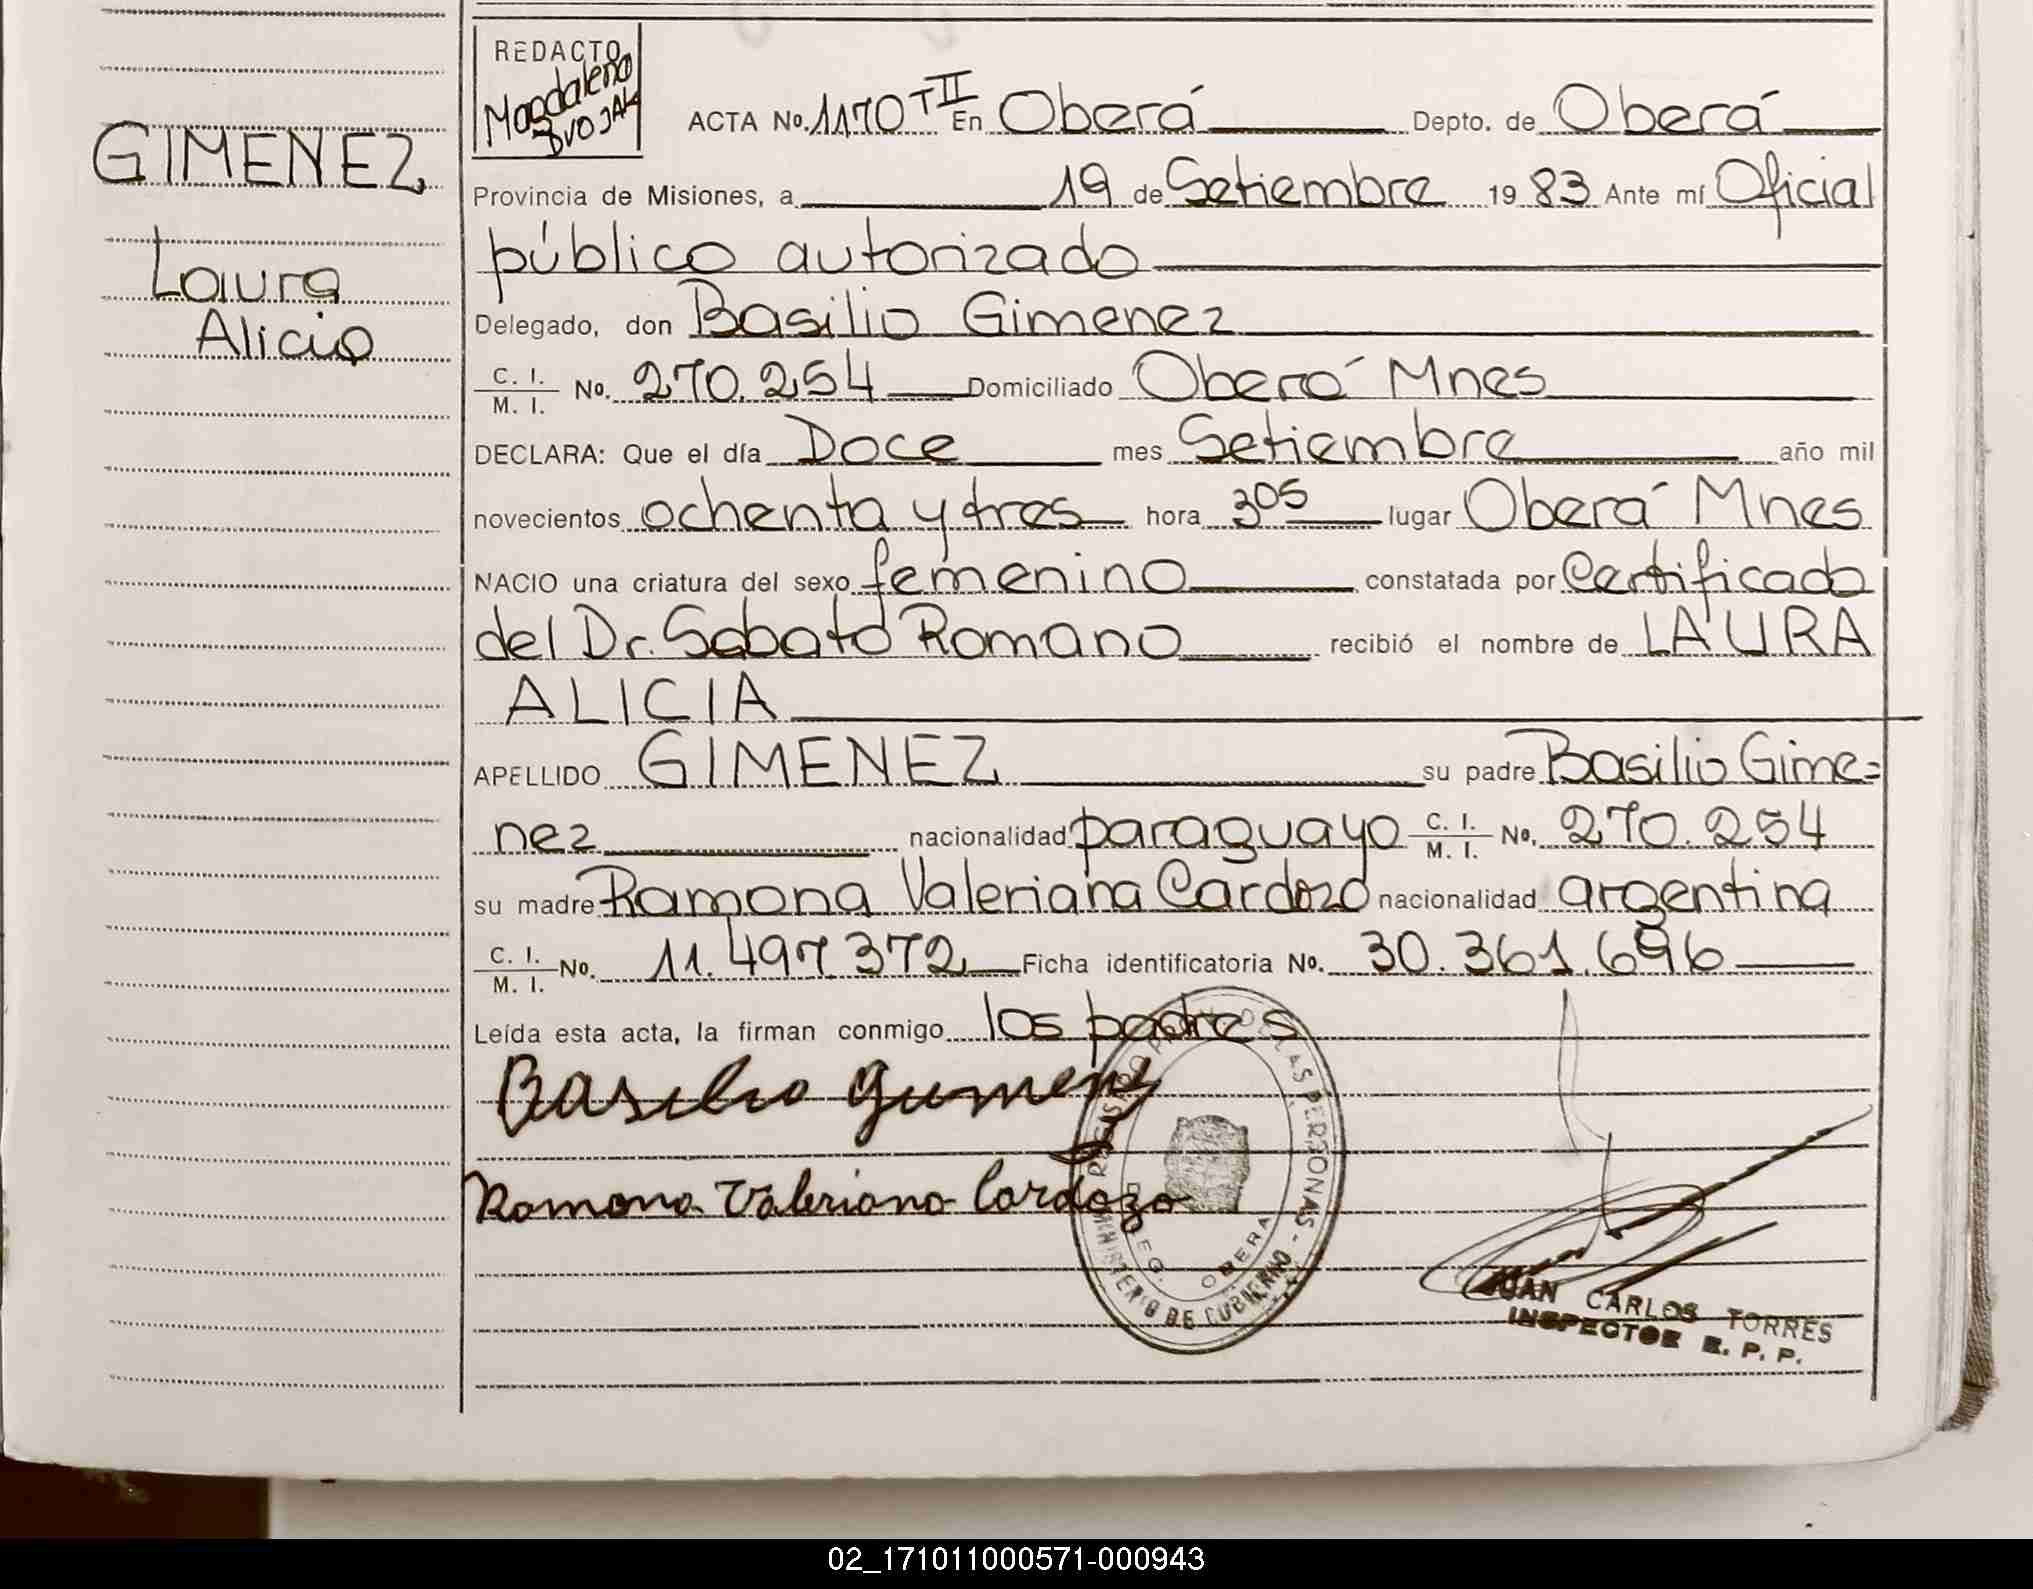 GIMENEZ
Laura
Alicia
REDACTO
Magdalena
DVOJAK
ACTA No. 1170 T II En Oberá Depto. de Oberá
Provincia de Misiones, a 19 de Setiembre 19 83 Ante mí Oficial
público autorizado
Delegado, don Basilio Gimenez
C. I. / M. I. No. 270.254 Domiciliado Oberá Mnes
DECLARA: Que el día Doce mes Setiembre año mil
novecientos ochenta y tres hora 3 05 lugar Oberá Mnes
NACIO una criatura del sexo femenino constatada por Certificado
del Dr. Sabato Romano recibió el nombre de LAURA
ALICIA
APELLIDO GIMENEZ su padre Basilio Gime=
nez nacionalidad paraguayo C. I. / M. I. No. 270.254
su madre Ramona Valeriana Cardozo nacionalidad argentina
C. I. / M. I. No. 11.497.372 Ficha identificatoria No. 30.361.696
Leída esta acta, la firman conmigo los padres
Basilio Gimenez
Ramona Valeriana Cardozo
DE LAS PERSONAS - MINISTERIO DE GOBIERNO
DEG. OBERA
JUAN CARLOS TORRES
INSPECTOR R. P. P.
02_171011000571-000943